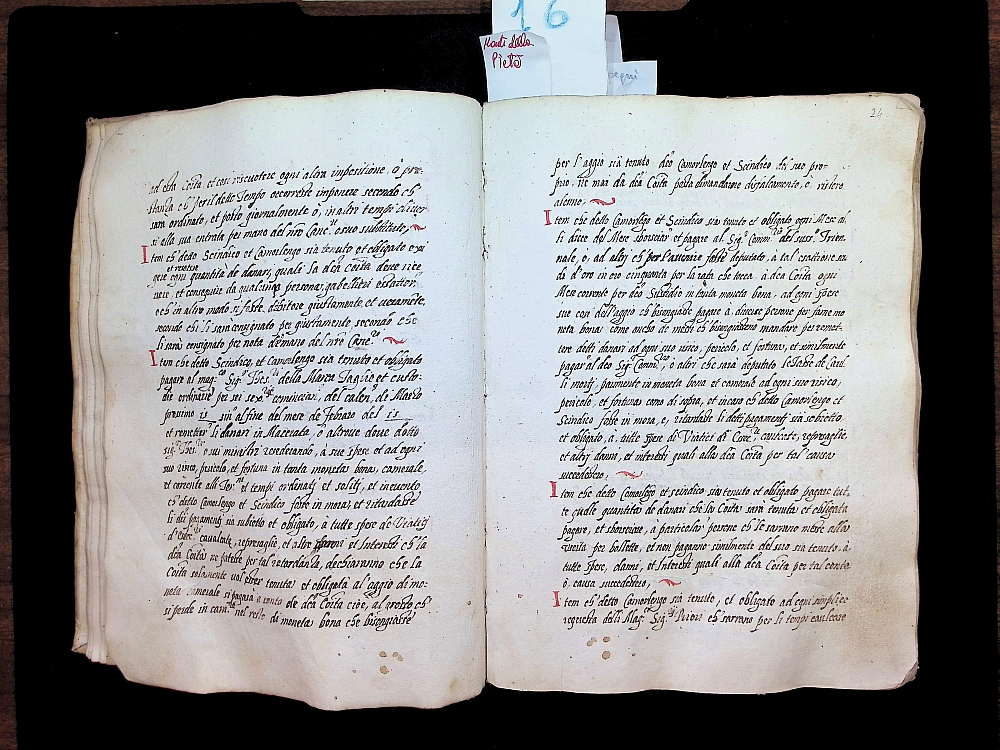 16
Monti della
Pietà
24
ad essa Coità, et cosi riscuotere ogni altra impositione, ò pre:
stanza ch' per il detto Tempo occorresse imponere secondo ch'
sara ordinato, et posto giornalmente ò, in altri tempi
alla sua entrata per mano del nro Canc.º o suo substituto,
Item ch' detto Scindico et Camorlengo sia tenuto et obligato
et rescotere
ogni quantità de danari, quali la dca Coità deve rice
vere, et conseguire da qualunq persona, gabellieri essattor,
ò ch' in altro modo si fosse debitore giustamente, et
secondo chi li sarà consignato per giustamente secondo che
li sarà consignato per nota de mano del nro Canc.º
Item che detto Scindico, et Camorlengo sia tenuto et obligato
pagare al mag.co Sig.r Thes.rº della Marca Taglie et
ordinarie per sei cominciati, del calen, de Marzo
prossimo 15 sin' al fine del mese de Febraro del 15
et remetter' li danari in Macerata, ò altrove dove detto
sig.r Thes.rº, e sui ministri rendecando, à sue spese et ad ogni
suo risico, pericolo, et fortuna in tanta moneta bona, camerale,
et corrente alli et tempi ordenati et soliti, et incuento
ch' detto Camorlengo et Scindico fosse in mora, et ritardasse
li dti pagamenti sia subietto et obligato, à tutte spese de Viatici
cavalcate, represaglie, et altre et Interessi ch' la
dca Coità ne patesse per tal retardanza, dechiaranno che la
Coità solamente vol esser tenuta et obligata al' aggio di mo:
neta camerale si pagarà à conto de dca Coità cioè, al presto ch'
si perde in nel resto de moneta bona che bisongiasse
per l' aggio sia tenuto dco Camorlengo et Scindico del suo pro:
prio, ne mai da dca Coità possa dimandarne disfalcamento, o, ristoro
alcuno,
Item che detto Camorlengo et Scindico sia tenuto et obligato ogni Mese al
li diece del Mese sborscar' et pagare al Sig.r Comm.rº del suss.º Trien.
nale, o, ad altri ch' per l'avenire fosse deputato, à tal esattione
di d'oro in oro cinquanta per la rata che tocca à dca Coità ogni
Mese corrente per dco Susidio in tanta moneta bona, ad ogni spese
sue con dell' aggio ch' bisongiasse pagare à diverse persone per farne mo
neta bona come ancho de messi ch' bisongiassero mandare per remet:
tere detti danari ad ogni suo risico, pericolo, et fortuna, et similmente
pagar al dco Sig.r Comm.rº, o altri che sarà deputato,
li morti, parimente in moneta bona et camerale ad ogni suo risico,
pericolo, et fortuna come di sopra, et incaso ch' detto Camorlengo et
Scindico fosse in mora, e, ritardasse li detti pagamenti sia subietto,
et obligato, à tutte spese di Viatici di represaglie,
et altri danni, et interessi quali alla dca Coità per tal causa
succedessero,
Item che detto Camorlengo et scindico sia tenuto et obligato pagare tut.
te quelle quantità de danari che la Coità sarà tenuta et obligata
pagare, et sborsciare, à particolar' persone ch' le sarrano messe alla
uscita per bollette, et non paganno similmente del suo sia tenuto, à
tutte spese, danni, et Interessi quali alla dca Coità per tal conto
ò causa succedessero,
Item ch' detto Camorlengo sia tenuto, et obligato ad ogni simplice
requesta delli Mag.ci Sig.ri Priori ch' sarrano per li tempi